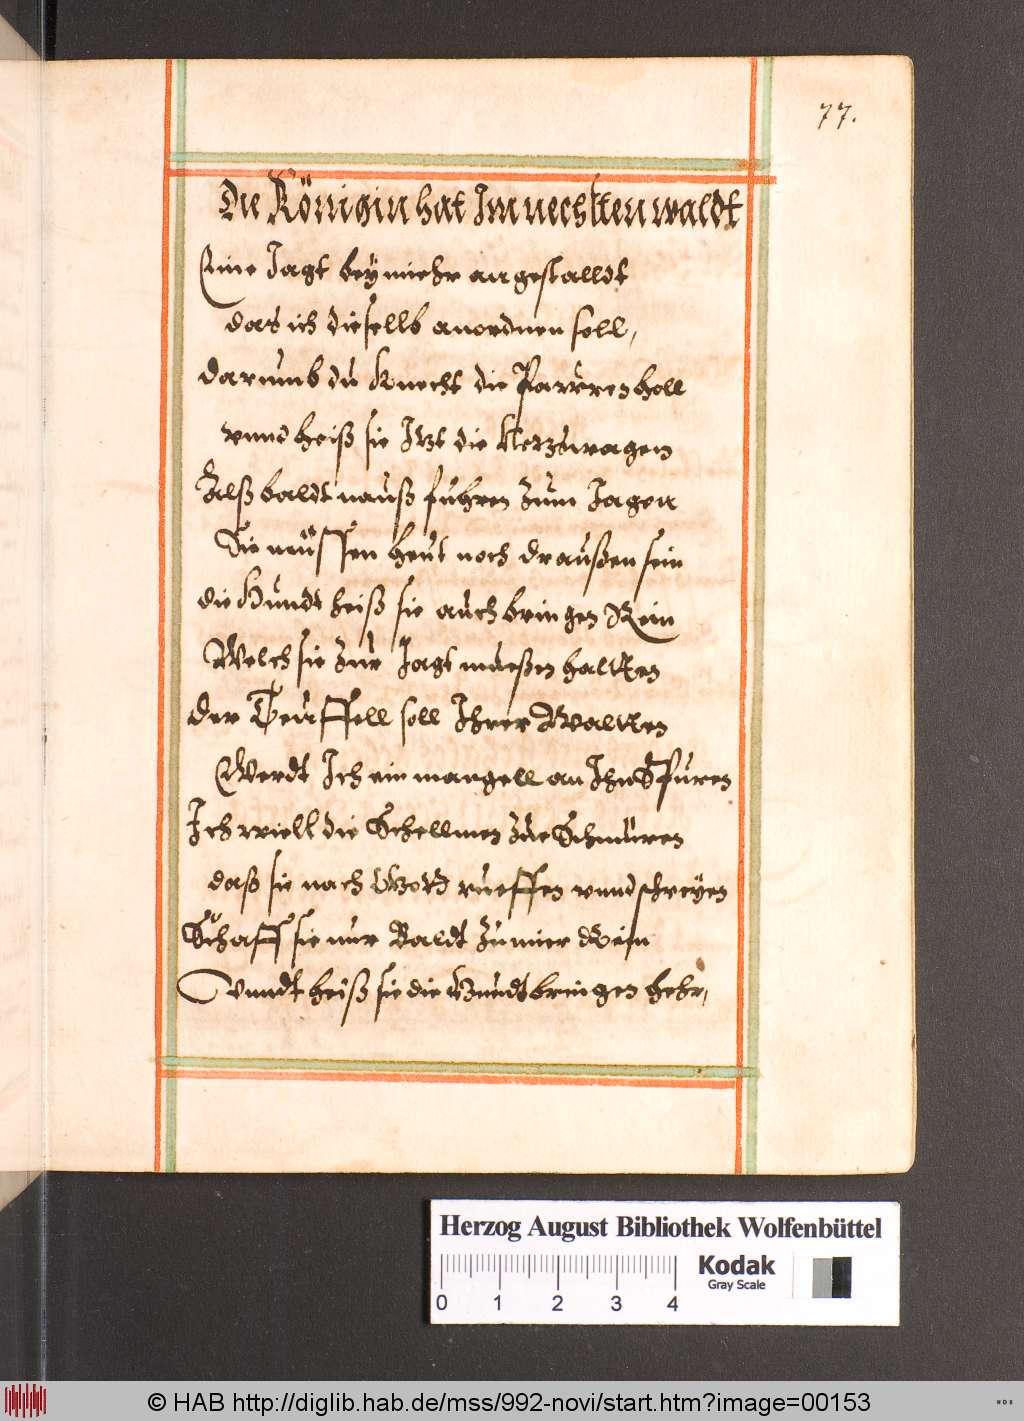 77.
Die Königin hat Im nechsten waldt
Eine Jagt beÿ miehr angestalldt
das ich dieselb anordnen soll,
darumb du Knecht die Paurren holl
vnnd heiß sie Itzt die Netzwagen
Alß baldt nauß fuhren zum Jagen
Sie müssen heut noch draußen sein
die Hundt heiß sie auch bringen Rein
Welch sie zur Jagt mueßen haltten
der Teuffell soll Ihrer Waltten
Werdt Ich ein mangell an Ihn Spuren
Ich wiell die Schellmen zue Schmüren
daß sie nach Gott rueffen vnnd schreÿen
Schaff sie nur Baldt zu mier
Vnndt heiß sie die Hundt bringen hehr,
Herzog August Bibliothek Wolfenbüttel
Kodak
Gray Scale
0 1 2 3 4
© HAB http://diglib.hab.de/mss/992-novi/start.htm?image=00153